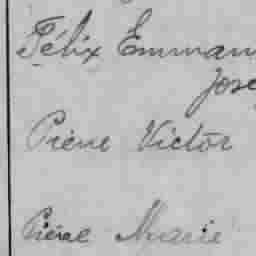 Félix Emman
Jose
Pierre Victor
Pierre Marie